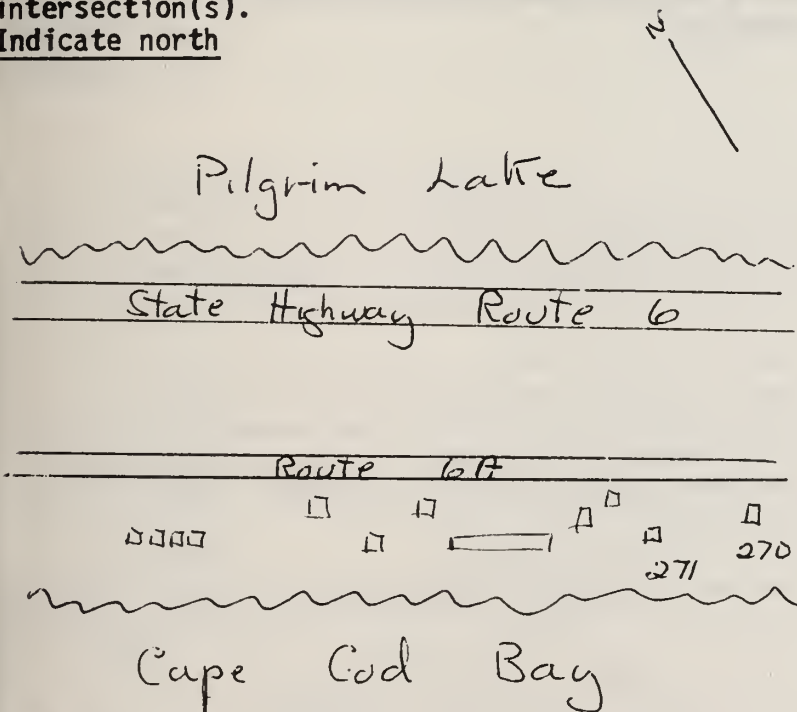 intersection(s).
Indicate north
N
Pilgrim Lake
State Highway Route 6
Route 6A
271
270
Cape Cod Bay